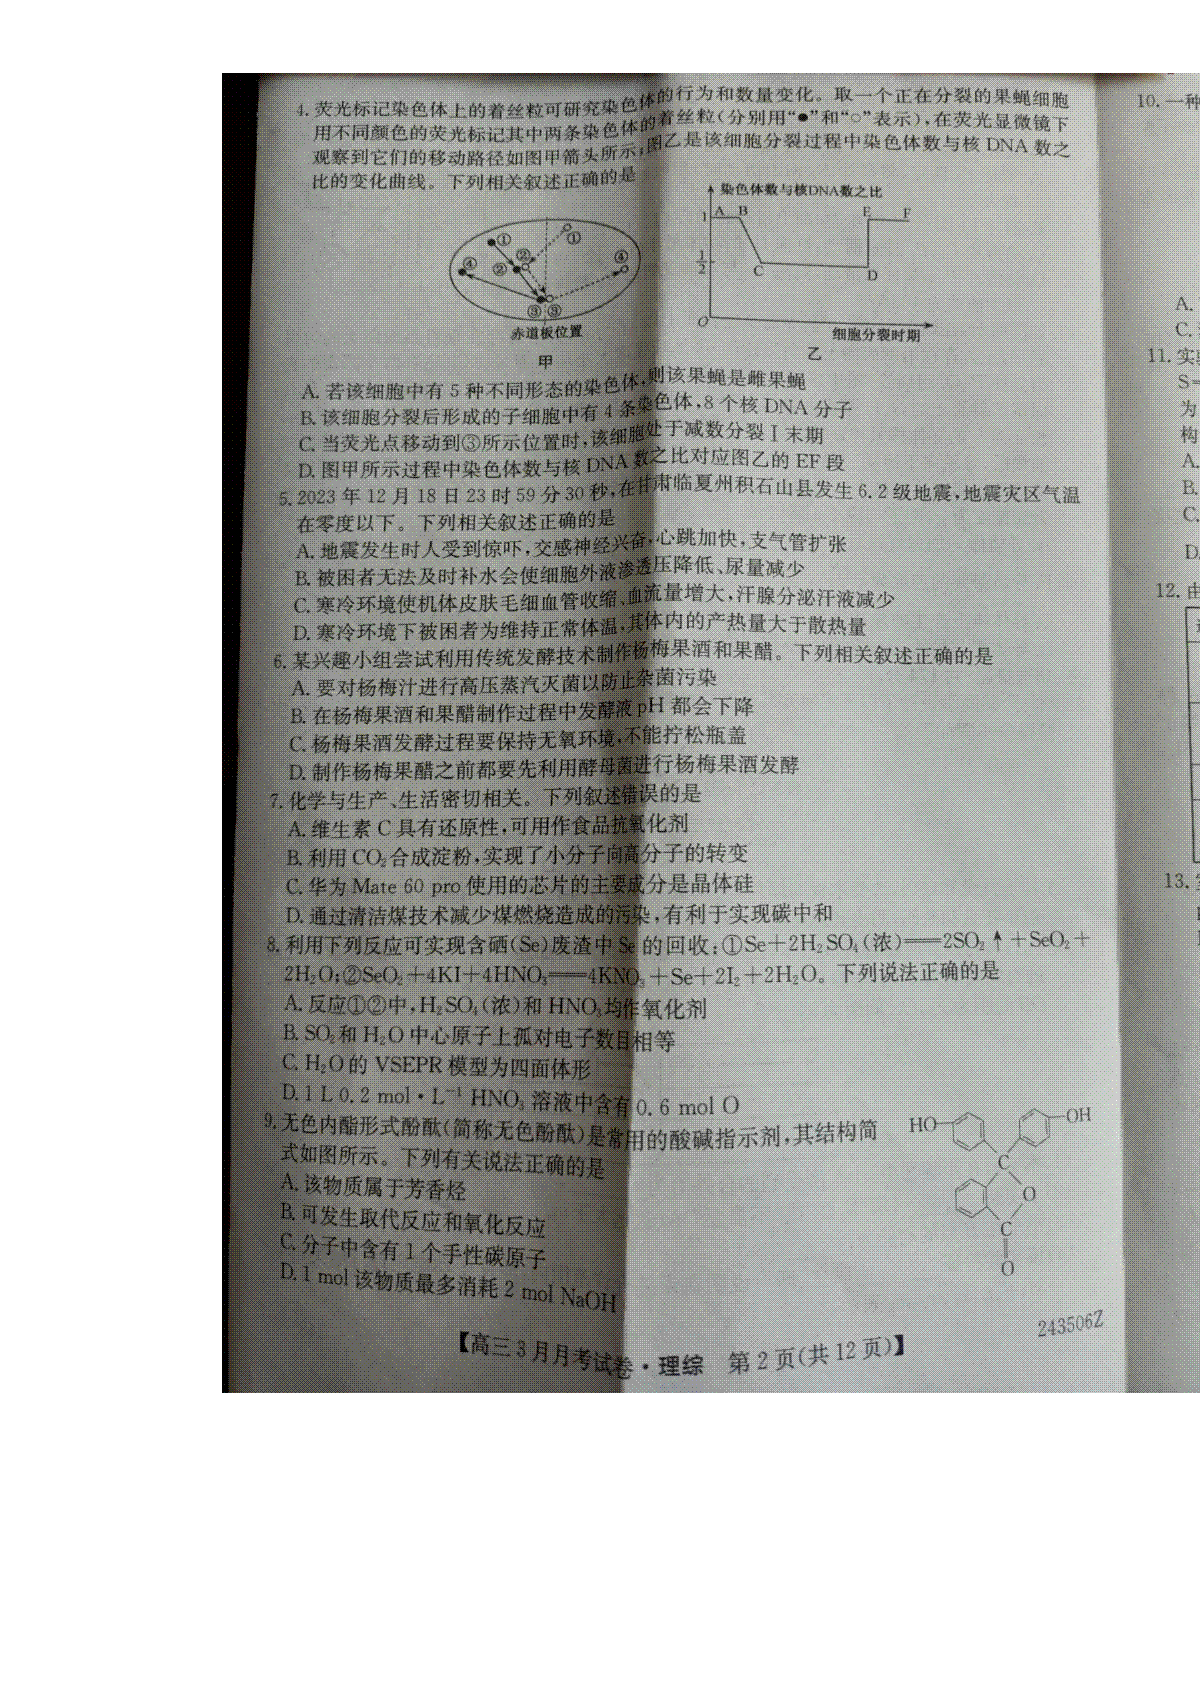 4. 荧光标记染色体上的着丝粒可研究染色体的行为和数量变化。取一个正在分裂的果蝇细胞
用不同颜色的荧光标记其中两条染色体的着丝粒(分别用“●”和“○”表示),在荧光显微镜下
观察到它们的移动路径如图甲箭头所示;图乙是该细胞分裂过程中染色体数与核 DNA 数之
比的变化曲线。下列相关叙述正确的是
① ① ② ② ④ ④ ③ ③
赤道板位置
甲
染色体数与核DNA数之比
1 A B E F
1/2 C D
O
细胞分裂时期
乙
A. 若该细胞中有 5 种不同形态的染色体,则该果蝇是雌果蝇
B. 该细胞分裂后形成的子细胞中有 4 条染色体,8 个核 DNA 分子
C. 当荧光点移动到③所示位置时,该细胞处于减数分裂 I 末期
D. 图甲所示过程中染色体数与核 DNA 数之比对应图乙的 EF 段
5. 2023 年 12 月 18 日 23 时 59 分 30 秒,在甘肃临夏州积石山县发生 6.2 级地震,地震灾区气温
在零度以下。下列相关叙述正确的是
A. 地震发生时人受到惊吓,交感神经兴奋,心跳加快,支气管扩张
B. 被困者无法及时补水会使细胞外液渗透压降低、尿量减少
C. 寒冷环境使机体皮肤毛细血管收缩、血流量增大,汗腺分泌汗液减少
D. 寒冷环境下被困者为维持正常体温,其体内的产热量大于散热量
6. 某兴趣小组尝试利用传统发酵技术制作杨梅果酒和果醋。下列相关叙述正确的是
A. 要对杨梅汁进行高压蒸汽灭菌以防止杂菌污染
B. 在杨梅果酒和果醋制作过程中发酵液 pH 都会下降
C. 杨梅果酒发酵过程要保持无氧环境,不能拧松瓶盖
D. 制作杨梅果醋之前都要先利用酵母菌进行杨梅果酒发酵
7. 化学与生产、生活密切相关。下列叙述错误的是
A. 维生素 C 具有还原性,可用作食品抗氧化剂
B. 利用 CO₂ 合成淀粉,实现了小分子向高分子的转变
C. 华为 Mate 60 pro 使用的芯片的主要成分是晶体硅
D. 通过清洁煤技术减少煤燃烧造成的污染,有利于实现碳中和
8. 利用下列反应可实现含硒(Se)废渣中 Se 的回收:①Se+2H₂SO₄(浓)══2SO₂↑+SeO₂+
2H₂O;②SeO₂+4KI+4HNO₃══4KNO₃+Se+2I₂+2H₂O。下列说法正确的是
A. 反应①②中,H₂SO₄(浓)和 HNO₃ 均作氧化剂
B. SO₂ 和 H₂O 中心原子上孤对电子数目相等
C. H₂O 的 VSEPR 模型为四面体形
D. 1 L 0.2 mol·L⁻¹ HNO₃ 溶液中含有 0.6 mol O
9. 无色内酯形式酚酞(简称无色酚酞)是常用的酸碱指示剂,其结构简
式如图所示。下列有关说法正确的是
A. 该物质属于芳香烃
B. 可发生取代反应和氧化反应
C. 分子中含有 1 个手性碳原子
D. 1 mol 该物质最多消耗 2 mol NaOH
HO OH
C
O
C
O
【高三 3 月月考试卷·理综 第 2 页(共 12 页)】
243506Z
10. 一种
A.
C.
11. 实
S=
为
构
A.
B.
C.
D.
12. 由
13.